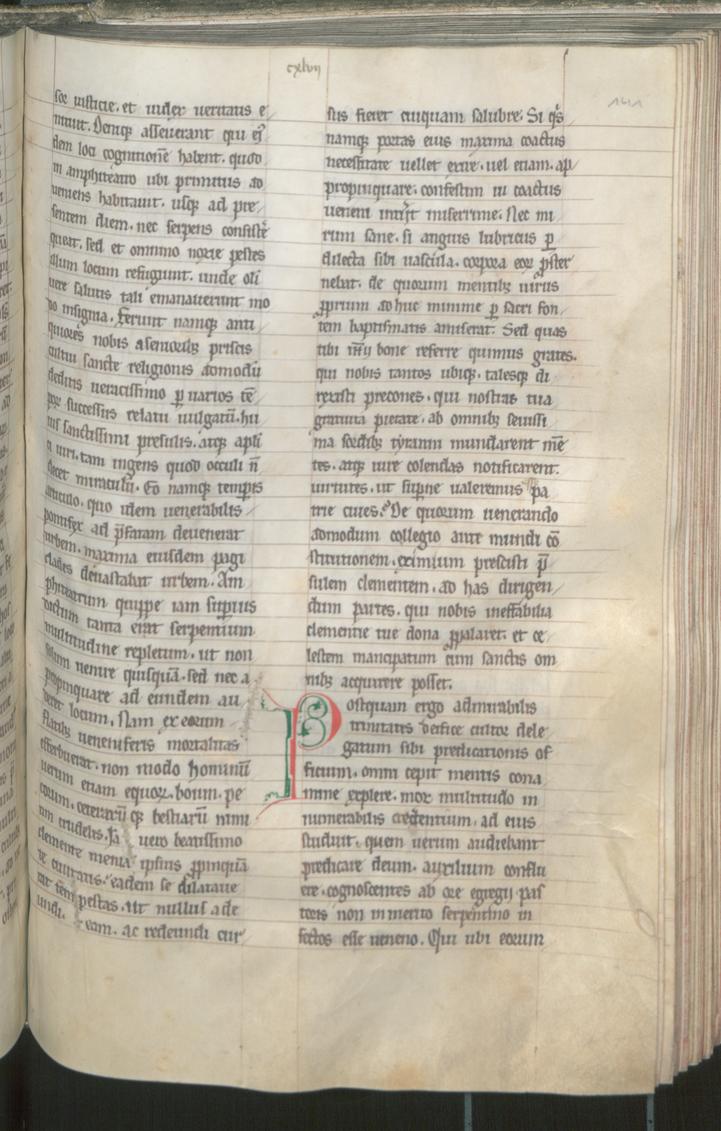 cxlvii
141
sor iusticie. et iudex ueritatis e
nituit. Deniq; asseuerant qui eiꝰ
dem loci cognitionē habent. quod
in amphiteatro ubi primitus ad
ueniens habitauit. usq; ad pre
sentem diem. nec serpens consistē
queat. sed et omnino noxie pestes
illum locum refugiunt. unde oli
uere salutis tali emanauerunt mo
do insignia. Ferunt namq; anti
quiores nobis a senioribꝫ priscis
cultui sancte religionis admodū
deditis ueracissimo ꝑ uarios tē
poꝝ successus relatu uulgatū. hu
ius sanctissimi presulis. atq; apli
ci uiri. tam ingens quod occuli ñ
decet miraculū. Eo namq; temꝑis
articulo. quo idem uenerabilis
pontifex ad p̄fatam deuenerat
urbem. maxima eiusdem pagi
clades deuastabat urbem. Am
phiteatrum quippe iam suꝑius
dictum tanta erat serpentium
multitudine repletum. ut non
solum uenire quisquā. sed nec a
propinquare ad eundem au
deret locum. Nam ex eorum
flatibꝫ ueneniferis mortalitas
efferbuerat. non modo hominū
uerum etiam equoꝝ. boum. pe
corum. ceterarū q; bestiarū nimi
um crudelis. Ia uero beatissimo
clemente menia ipsius ꝓpinquā
te ciuitatis. eadem se dilataue
rat tēm pestas. Ut nullus ade
undi. eam. ac redeundi cur
sus fieret cuiquam salubre. Si q̇s
namq; portas eius maxima coactus
necessitate uellet exire. uel etiam. ap
propinquare. confestim ui coactus
ueneni interijt miserrime. Nec mi
rum sane. si anguis lubricus ꝑ
dilecta sibi uascula. corpora eoꝝ ꝓster
nebat. de quorum mentibꝫ uirus
ꝓprium adhuc minime ꝑ sacri fon
tem baptismatis amiserat. Sed quas
tibi ihū bone referre quimus grates.
qui nobis tantos ubiq;. talesq; di
rexisti precones. qui nostras tua
gratuita pietate. ab omnibꝫ seuissi
ma sordibꝫ tyranni mundarent mē
tes. atq; iure colendas notificarent.
uirtutes. ut suꝑne ualeremus pa
trie ciues. De quorum uenerando
admodum collegio ante mundi cō
stitutionem. eximium prescisti p̄
sulem clementem. ad has dirigen
dum partes. qui nobis ineffabilia
clementie tue dona ꝓpalaret. et ce
lestem mancipatum cum sanctis om
nibꝫ acquirere posset.
Postquam ergo admirabilis
trinitatis deifice cultor dele
gatum sibi predicationis of
ficium. omni cepit mentis cona
mine explere. mox multitudo in
numerabilis credentium. ad eius
studuit. quem uerum audiebant
predicare deum. auxilium conflu
ere. cognoscentes ab ore egregij pas
toris non inmerito serpentino in
fectos esse ueneno. Qui ubi eorum